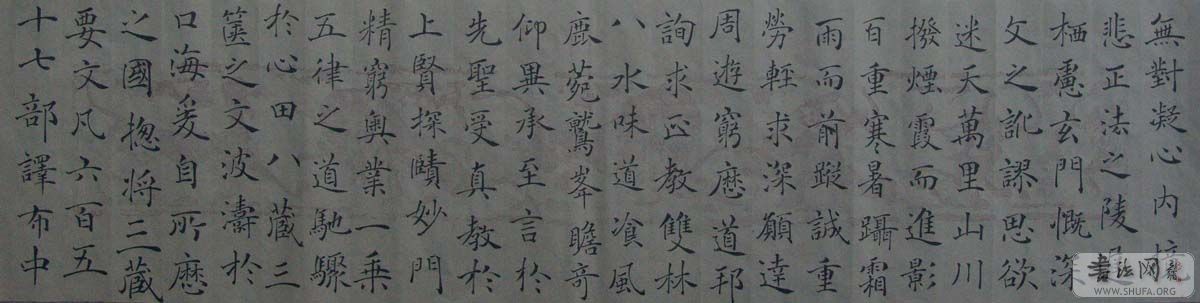 無對凝心内境
悲正法之陵
栖慮玄門慨深
文之訛謬思欲
迷天萬里山川
撥煙霞而進影
百重寒暑躡霜
雨而前蹤誠重
勞輕求深願達
周遊窮歷道邦
詢求正教雙林
八水味道飡風
鹿菀鷲峯瞻奇
仰異承至言於
先聖受真教於
上賢探賾妙門
精窮奧業一乘
五律之道馳驟
於心田八藏三
篋之文波濤於
口海爰自所歷
之國揔将三藏
要文凡六百五
十七部譯布中
书法网
WWW.SHUFA.ORG